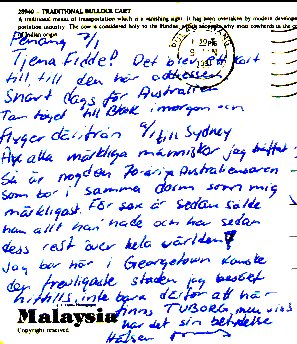 29940 - TRADITIONAL BULLOCK CART
A traditional means of transportation which is a vanishing sight. It has been overtaken by modern
portation The cow is considered holy to the Hindus
of Indian origin
Penang 7/1
Tjena Fidde! Det blev ett kort
till till den här addressen
Snart dags för Australien
Tar tåget till Bkok imorgon och
flyger därifrån till Sydney
Av alla märkliga människor jag träffat
så är nog den 70-årig Australiensaren
som bor i samma dorm som mig
märkligast. För sex år sedan sålde
han allt han hade och har sedan
dess rest över hela världen!
Jag bor här i Georgetown kanske
den trevligaste staden jag besökt
hittills, inte bara därför att här
finns TUBORG, men visst
har det sin betydelse
Hälsn
Malaysia
Copyright reserved